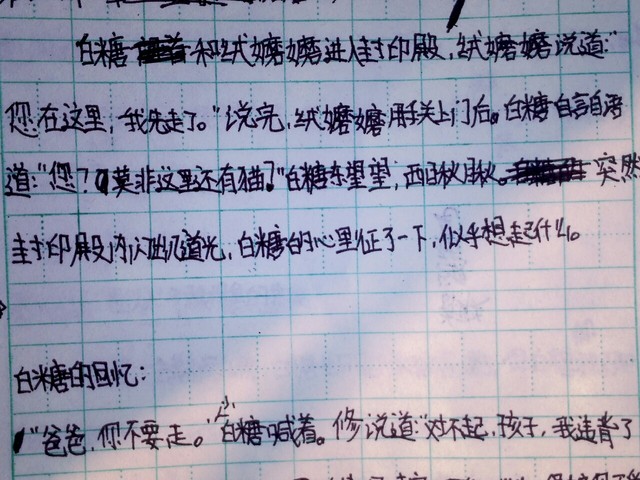 白糖和绒嬷嬷进入封印殿,绒嬷嬷说道:"
您在这里,我先走了。"说完,绒嬷嬷用手关上门后。白糖自言自语
道:"您?莫非这里还有猫?"白糖东望望,西瞅瞅。突然
封印殿内闪出几道光,白糖的心里征了一下,似乎想起什么。
白糖的回忆:
"爸爸,你不要走。"小白糖喊着。修说道:"对不起,孩子,我违背了